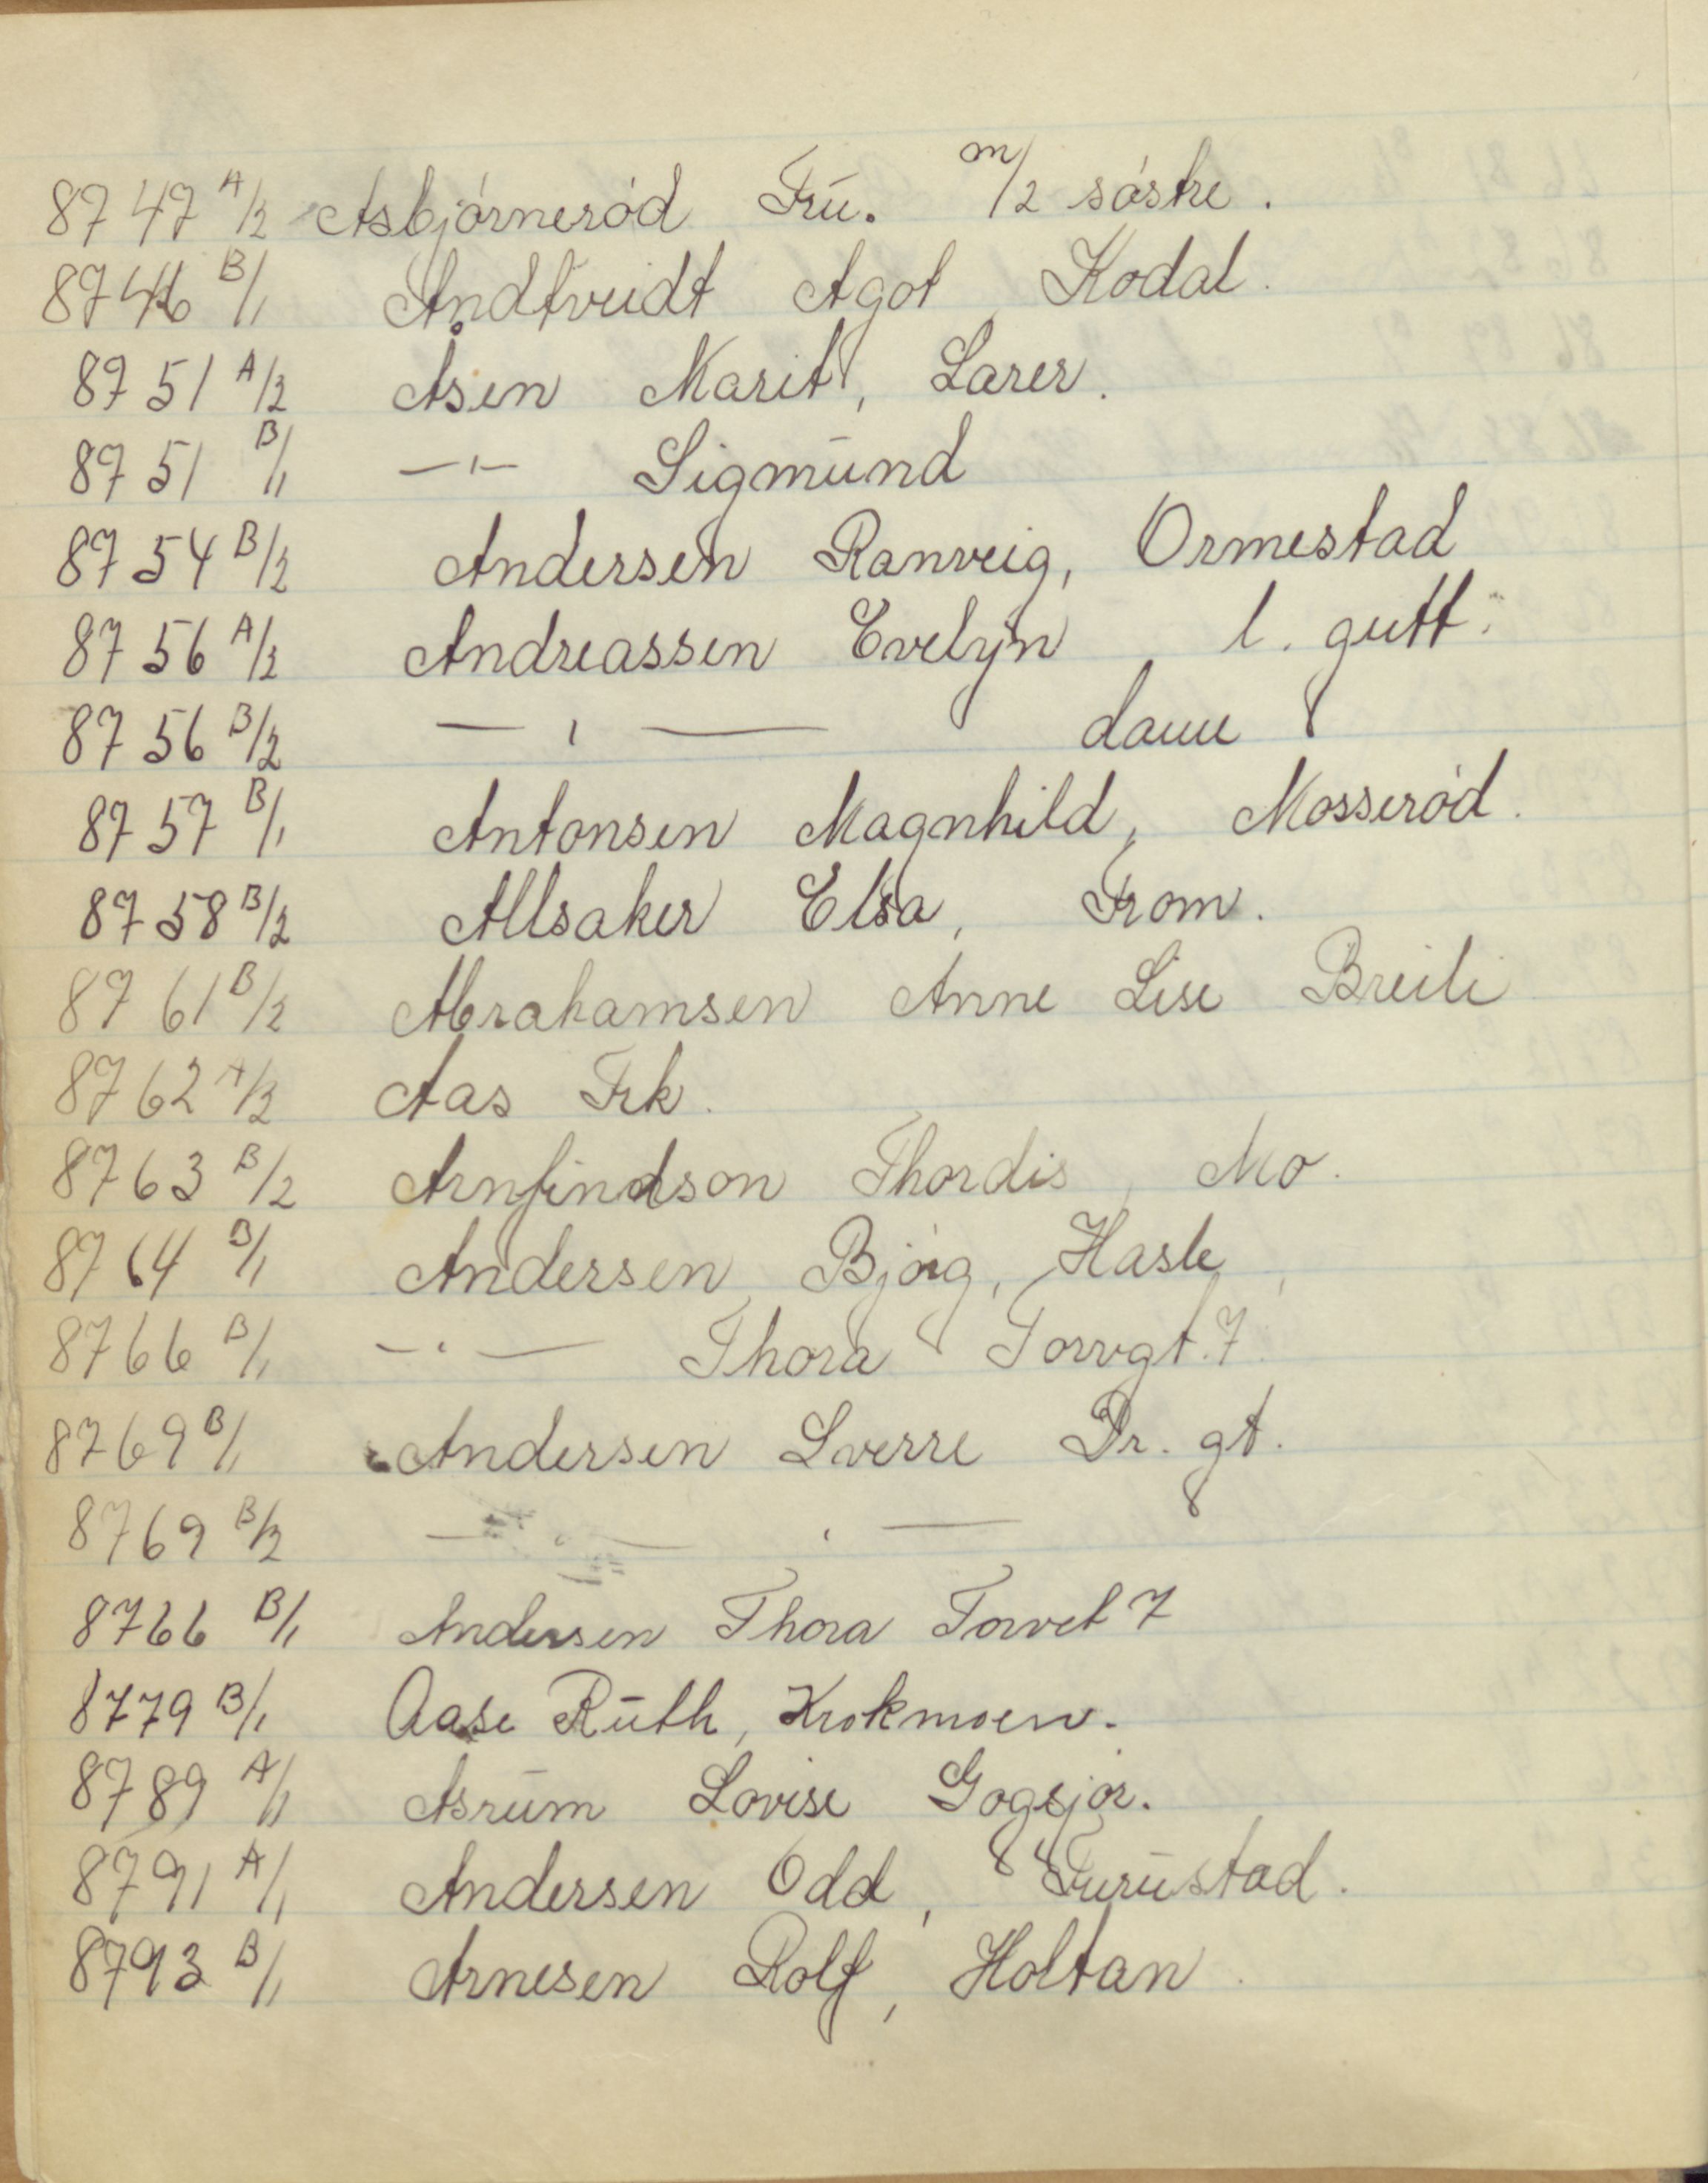 8747 A/2 Asbjørnerød Frú. m/2 søstre.
8746 B/1 Andtveidt Agot Kodal.
8751 A/2 Åsen Marit, Larer.
8751 B/1 —"— Sigmund
8754 B/2 Andersen Ranveig, Ormestad
8756 A/2 Andreassen Evelyn l. gutt.
8756 B/2 —"— dame
8757 B/1 Antonsen Magnhild, Mosserød.
8758 B/2 Allsaker Elsa, Fron.
8761 B/2 Abrahamsen Anne Lise Breili
8762 A/2 Aas Frk.
8763 B/2 Arnfindson Thordis, Mo.
8764 B/1 Andersen Bjørg, Hasle
8766 B/1 —"— Thora Torvgt. 7.
8769 B/1 Andersen Sverre Pr. gt.
8769 B/2 —"— —"—
8766 B/1 Andersen Thora Torvet 7
8779 B/1 Aase Ruth, Krokmoen.
8789 A/1 Asrum Lovise Gogsjør.
8791 A/1 Andersen Odd, Furustad.
8793 B/1 Arnesen Rolf, Holtan.